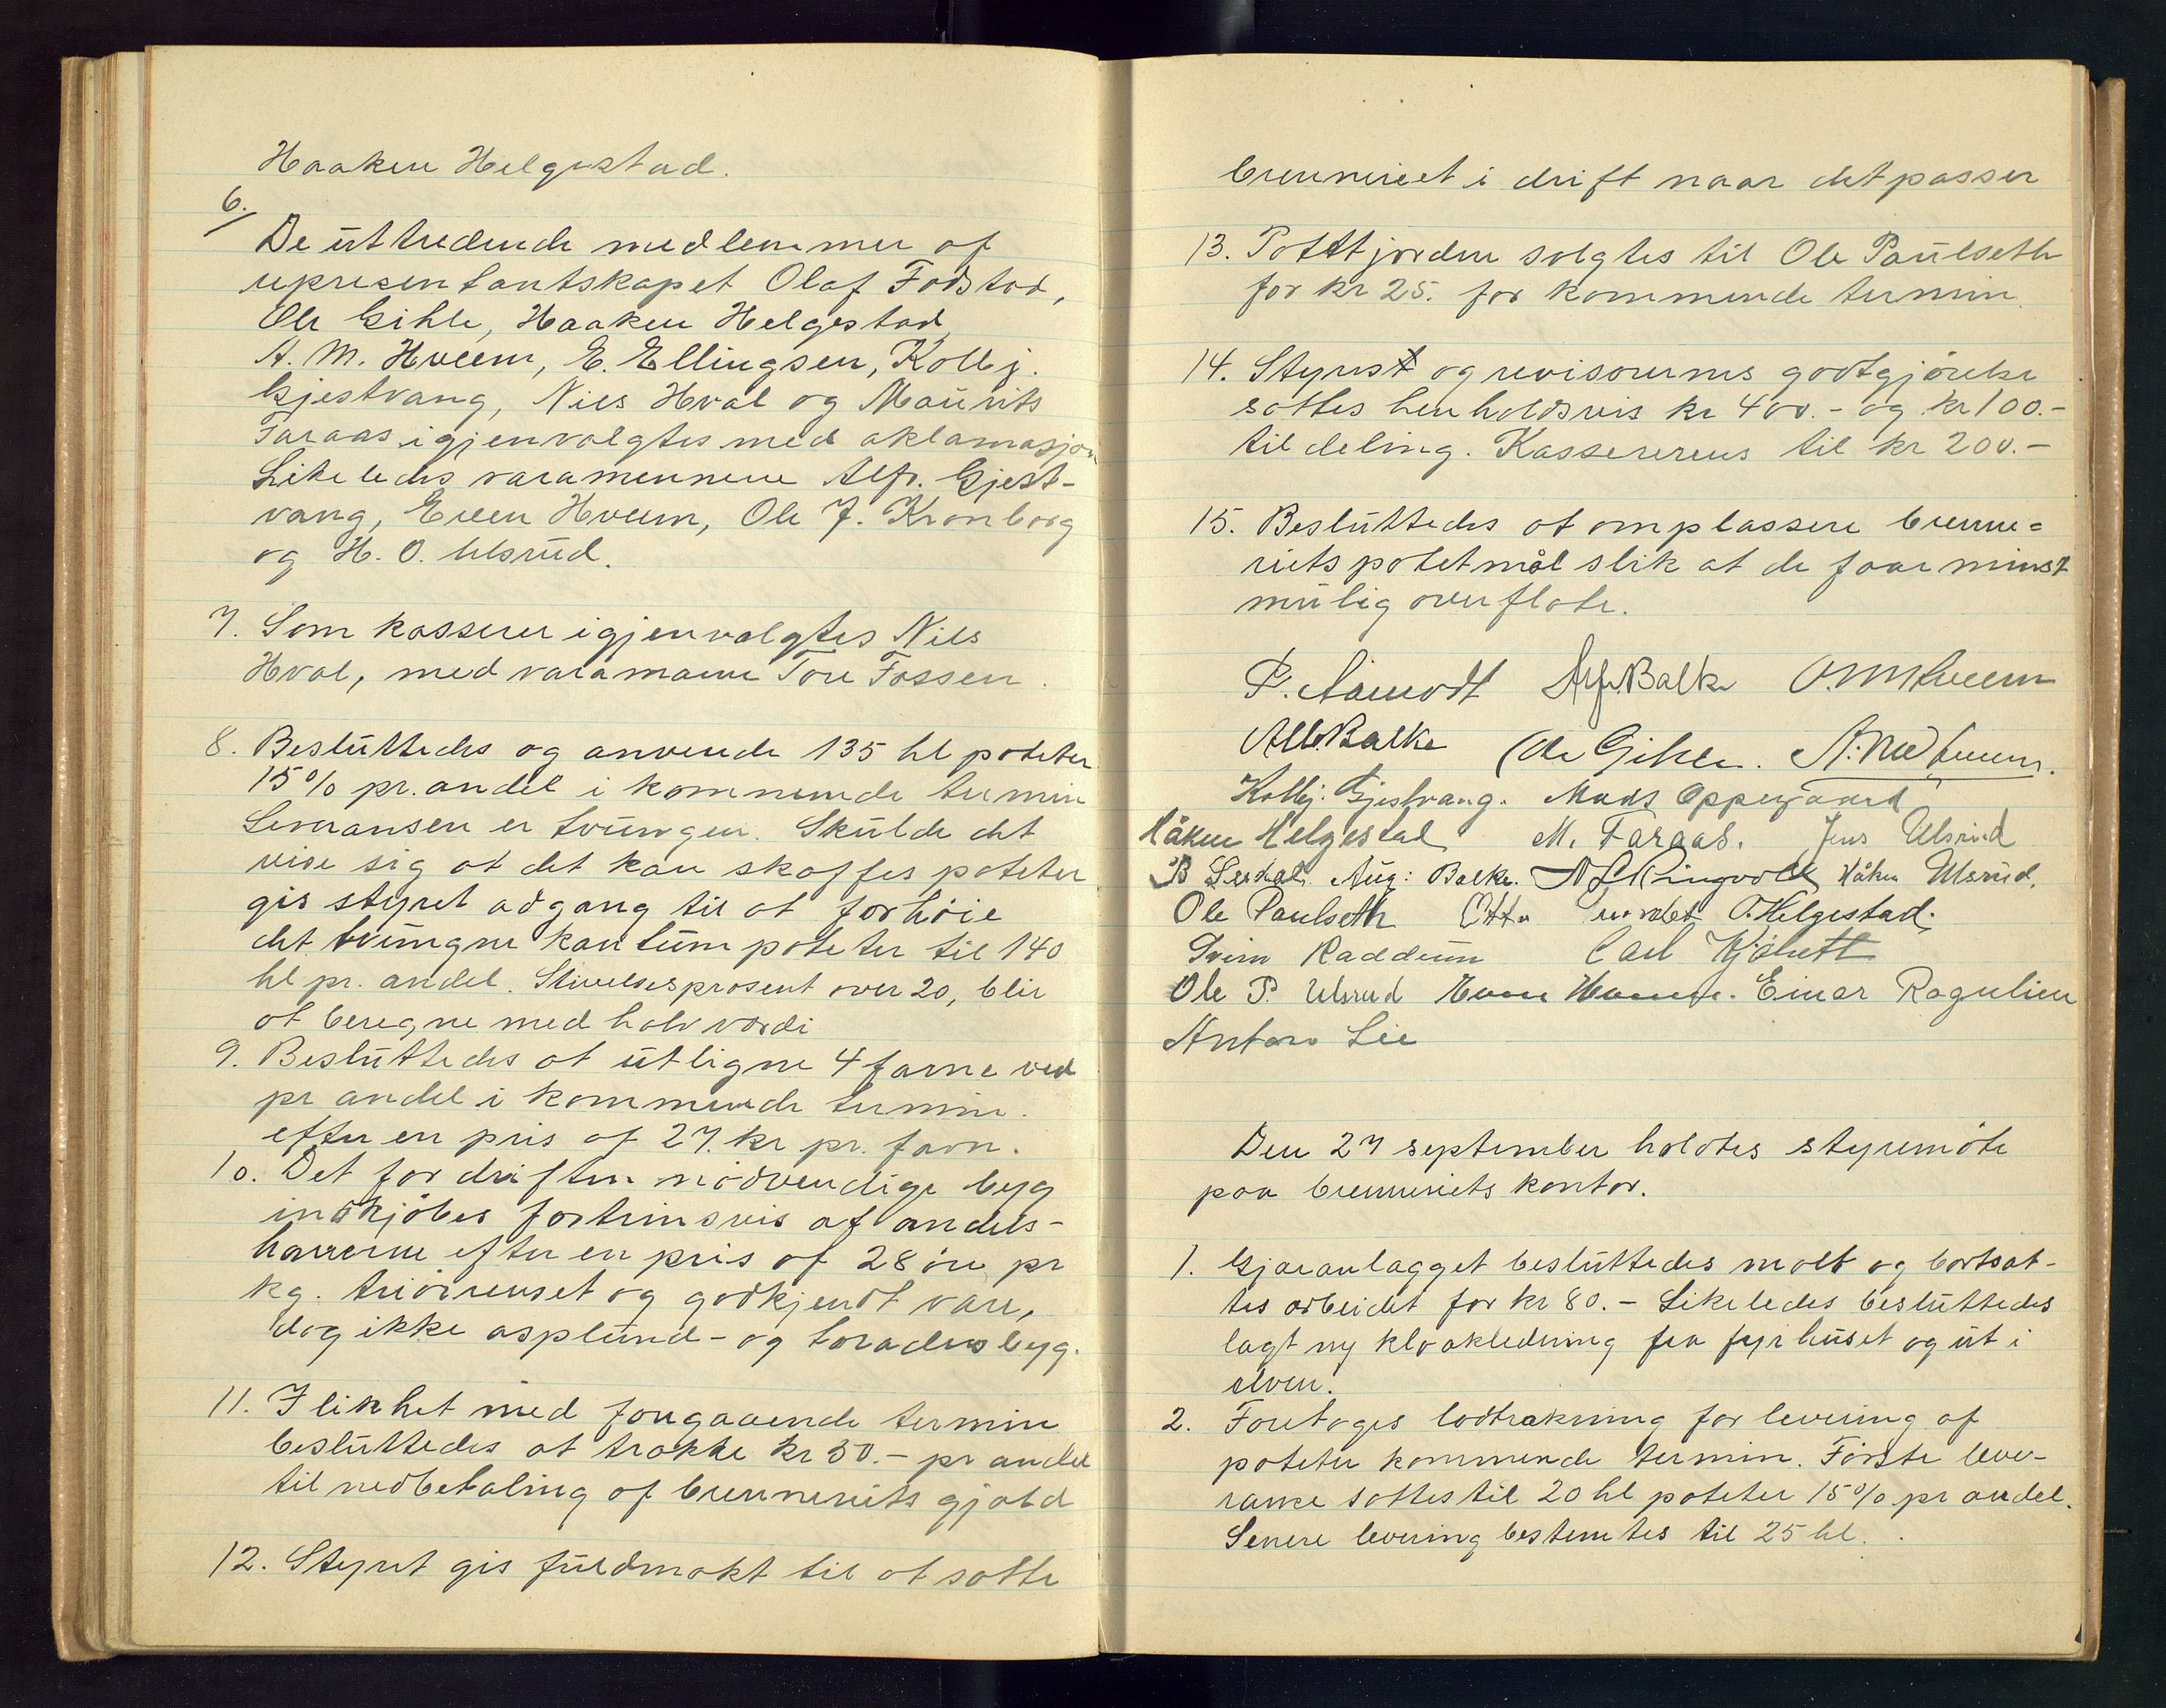 Haaken Helgestad.
6.
De uttredende medlemmer af
representantskapet Olaf Fodstad,
Ole Gihle, Haaken Helgestad,
A. M. Hveem, E. Ellingsen, Kolbj.
Gjestvang, Nils Hval og Maurits
Faraas igjenvalgtes med aklamasjon
Likeledes varamennene Alfr. Gjest-
vang, Even Hveem, Ole J. Kronborg
og H. O. Ulsrud.
7. Som kasserer igjenvalgtes Nils
Hval, med varamann Tore Fossen.
8. Besluttedes og anvende 135 hl poteter
15% pr. andel i kommende termin
Leveransen er tvungen. Skulde det
vise sig at det kan skaffes poteter
gis styret adgang til at forhöie
det tvungne kantum poteter til 140
hl pr. andel. Stivelsesprosent over 20, blir
at beregne med halv værdi
9. Besluttedes at utligne 4 favne ved
pr andel i kommende termin.
efter en pris af 27. kr pr. favn.
10. Det for driften nödvendige byg
indkjöbes fortrinsvis af andels-
haverne efter en pris af 28 öre pr
kg. triörrenset og godkjendt vare,
dog ikke asplund- og toradersbyg.
11. I likhet med forrgaaende termin
besluttedes at trække kr 50.- pr andel
til nedbetaling af brenneriets gjæld
12. Styret gis fuldmakt til at sætte
brenneriet i drift naar det passer
13. Pottjorden solgtes til Ole Paulseth
for kr 25. for kommende termin.
14. Styrets og revisorernes godtgjörelse
sattes henholdsvis kr 400.- og kr 100.-
til deling. Kassererens til kr 200.-
15. Besluttedes at omplassere brenne=
riets potetmål slik at de faar minst
mulig overflate.
P. Aamodt Alf. Balke O. M. Hveem
Alb. Balke Ole Gihle. A. M. Hveem.
Kolbj. Gjestvang. Mads Oppegaard
Håken Helgestad M. Faraas. Jens Ulsrud
Aug: Balke. Ringvold Håken Ulsrud.
Ole Paulseth Otto O. Helgestad.
Raddum Carl
Ole P. Ulsrud Even Hveem. Einar Rognlien
Anton Lie
Den 27 september holdtes styremöte
paa brenneriets kontor.
1. Gjæranlægget besluttedes malt og bortsat-
tes arbeidet for kr 80.- Likeledes besluttedes
lagt ny kloakledning fra fyrhuset og ut i
elven.
2. Foretoges lodtrækning for levering af
poteter kommende termin. Förste leve-
ranse sattes til 20 hl poteter 15% pr andel.
Senere levering bestemtes til 25 hl.